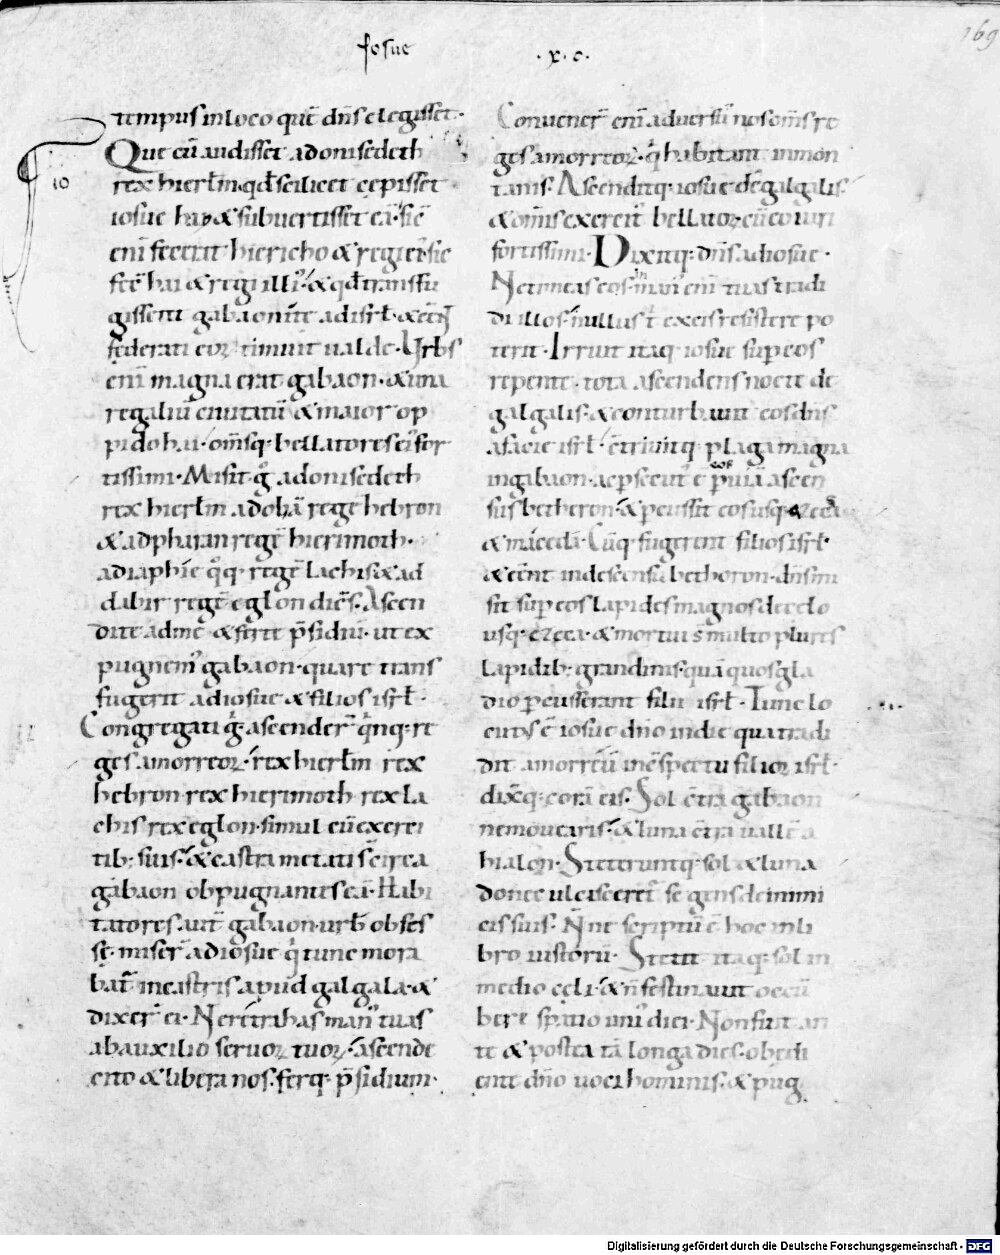 Josue
.x.c.
169
tempus in loco quē dn̄s elegisset·
Que cū audisset adonisedech
10
rex hierłm·qđ scilicet cepisset
iosue hay & subuertisset eā·sic̄
enī fecerat hiericho & regi ei᷒·sic
fec̄ hai & regi illi᷒·& qđ transfu
gissent gabaonitę ad isrł·& eēnt
federati eoꝝ timuit ualde·Urbs
enī magna erat gabaon·& una
regaliū ciuitatū & maior op
pido hai·om̄sq·bellatores ei᷒ for
tissimi·Misit gͦ adonisedech
rex hierłm ad ohā regē hebron
& ad pharan regē hierimoth·
ad iaphie qͦq·regē lachis & ad
dabir regē eglon dicēs·Ascen
dite ad me & ferte p̄sidiū·ut ex
pugnem᷒ gabaon·quare trans
fugerit ad iosue & filios isrł·
Congregati gͥ·ascender̄ qͥnq·re
ges amorreoꝝ·rex hierłm rex
hebron·rex hierimoth·rex la
chis rex eglon·simul cū exerci
tib; suis·& castra metati s̄ circa
gabaon obpugnantes eā·Habi
tatores aut̄ gabaon·urb̄ obses
sę·miser̄ ad iosue qͥ tunc mora
bat᷒ in castris apud galgala·&
dixer̄ ei·Ne retrahas man᷒ tuas
ab auxilio seruoꝝ tuoꝝ·ascende
cito & libera nos·ferq·p̄sidium·
Conuener̄ enī aduersū nos om̄s re
ges amorreoꝝ·qͥ habitant in mon
tanis·Ascenditq·iosue de galgalis·
& om̄is exercit᷒ bellatoꝝ cū eo uiri
fortissimi·Dixitq·dn̄s ad iosue·
Ne timeas eos·in man᷒ enī tuas tradi
di illos·nullus t̄ ex eis resistere po
terit·Irruit itaq·iosue sup eos
repente·tota ascendens nocte de
galgalis·& conturbauit eos dn̄s
a facie isrł·c̄triuitq·plaga magna
in gabaon·ac psecut᷒ ē eos p uiā ascen
sus bethoron·& pcussit eos usq·azeca
& maceda·Cūq·fugerent filios isrł·
& eēnt in descensu bethoron·dn̄s mi
sit sup eos lapides magnos de cęlo
usq·ezeca·& mortui s̄ multo plures
lapidib; grandinis·quā quos gla
dio pcusserant filii isrł·Tunc lo
cutus ē iosue dn̄o in die qua tradi
dit amorreū in c̄spectu filioꝝ isrł·
dixq·corā eis·Sol c̄tra gabaon
ne mouearis·& luna c̄tra uallē a
hialon·Steteruntq·sol & luna
donec ulcisceret᷒ se gens de inimi
cis suis·Nn̄e scriptū ē hoc in li
bro iustorū·Stetit itaq·sol in
medio cęli·& n̄ festinauit occū
bere spatio uni᷒ diei·Non fuit an
te & postea tā longa dies·obedi
ente dn̄o uoci hominis·& pug
Digitalisierung gefördert durch die Deutsche Forschungsgemeinschaft - DFG